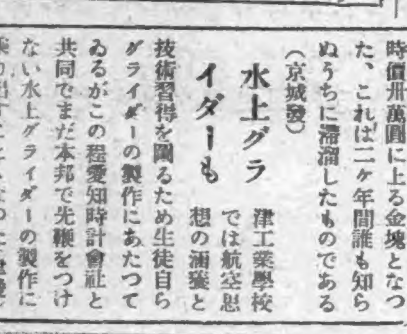 時價卅萬圓に上る金塊となつ
た、これは二ヶ年間誰も知ら
ぬうちに滯溜したものである
(京城發)
水上グラ
イダーも
津工業學校
では航空思
想の涵養と
技術習得を圖るため生徒自ら
グライダーの製作にあたつて
ゐるがこの程愛知時計會社と
共同でまだ本邦で先鞭をつけ
ない水上グライダーの製作に